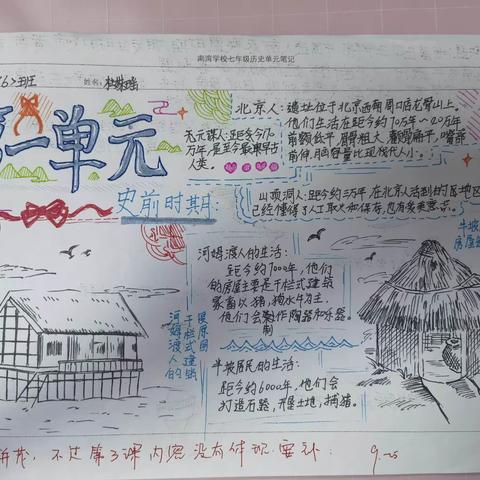 南湾学校七年级历史单元笔记
6>班 姓名:
第一单元
史前时期:
元谋人:距今约170
万年,是至今最早古
人类。
北京人:遗址位于北京西南周口店龙骨山上。
他们生活在距今约70万年~20万年
前额低平,眉骨粗大,颧骨扁平,嘴部
前伸,脑容量比现代人小。
山顶洞人:距今约3万年,在北京人活动的区地区
已经懂得了人工取火和保存,也有爱美意志。
河姆渡人的生活:
距今约7000年,他们
的房屋主要是干栏式建筑
家畜以猪,狗水牛为主.
他们会制作陶器和乐器.
半坡居民的生活:
距今约6000年,他们会
打造石路,开垦土地,捕猪。
河姆渡人的
干栏式建筑
复原图
半坡
房屋
不过第3课内容没有体现.要补.
9.25